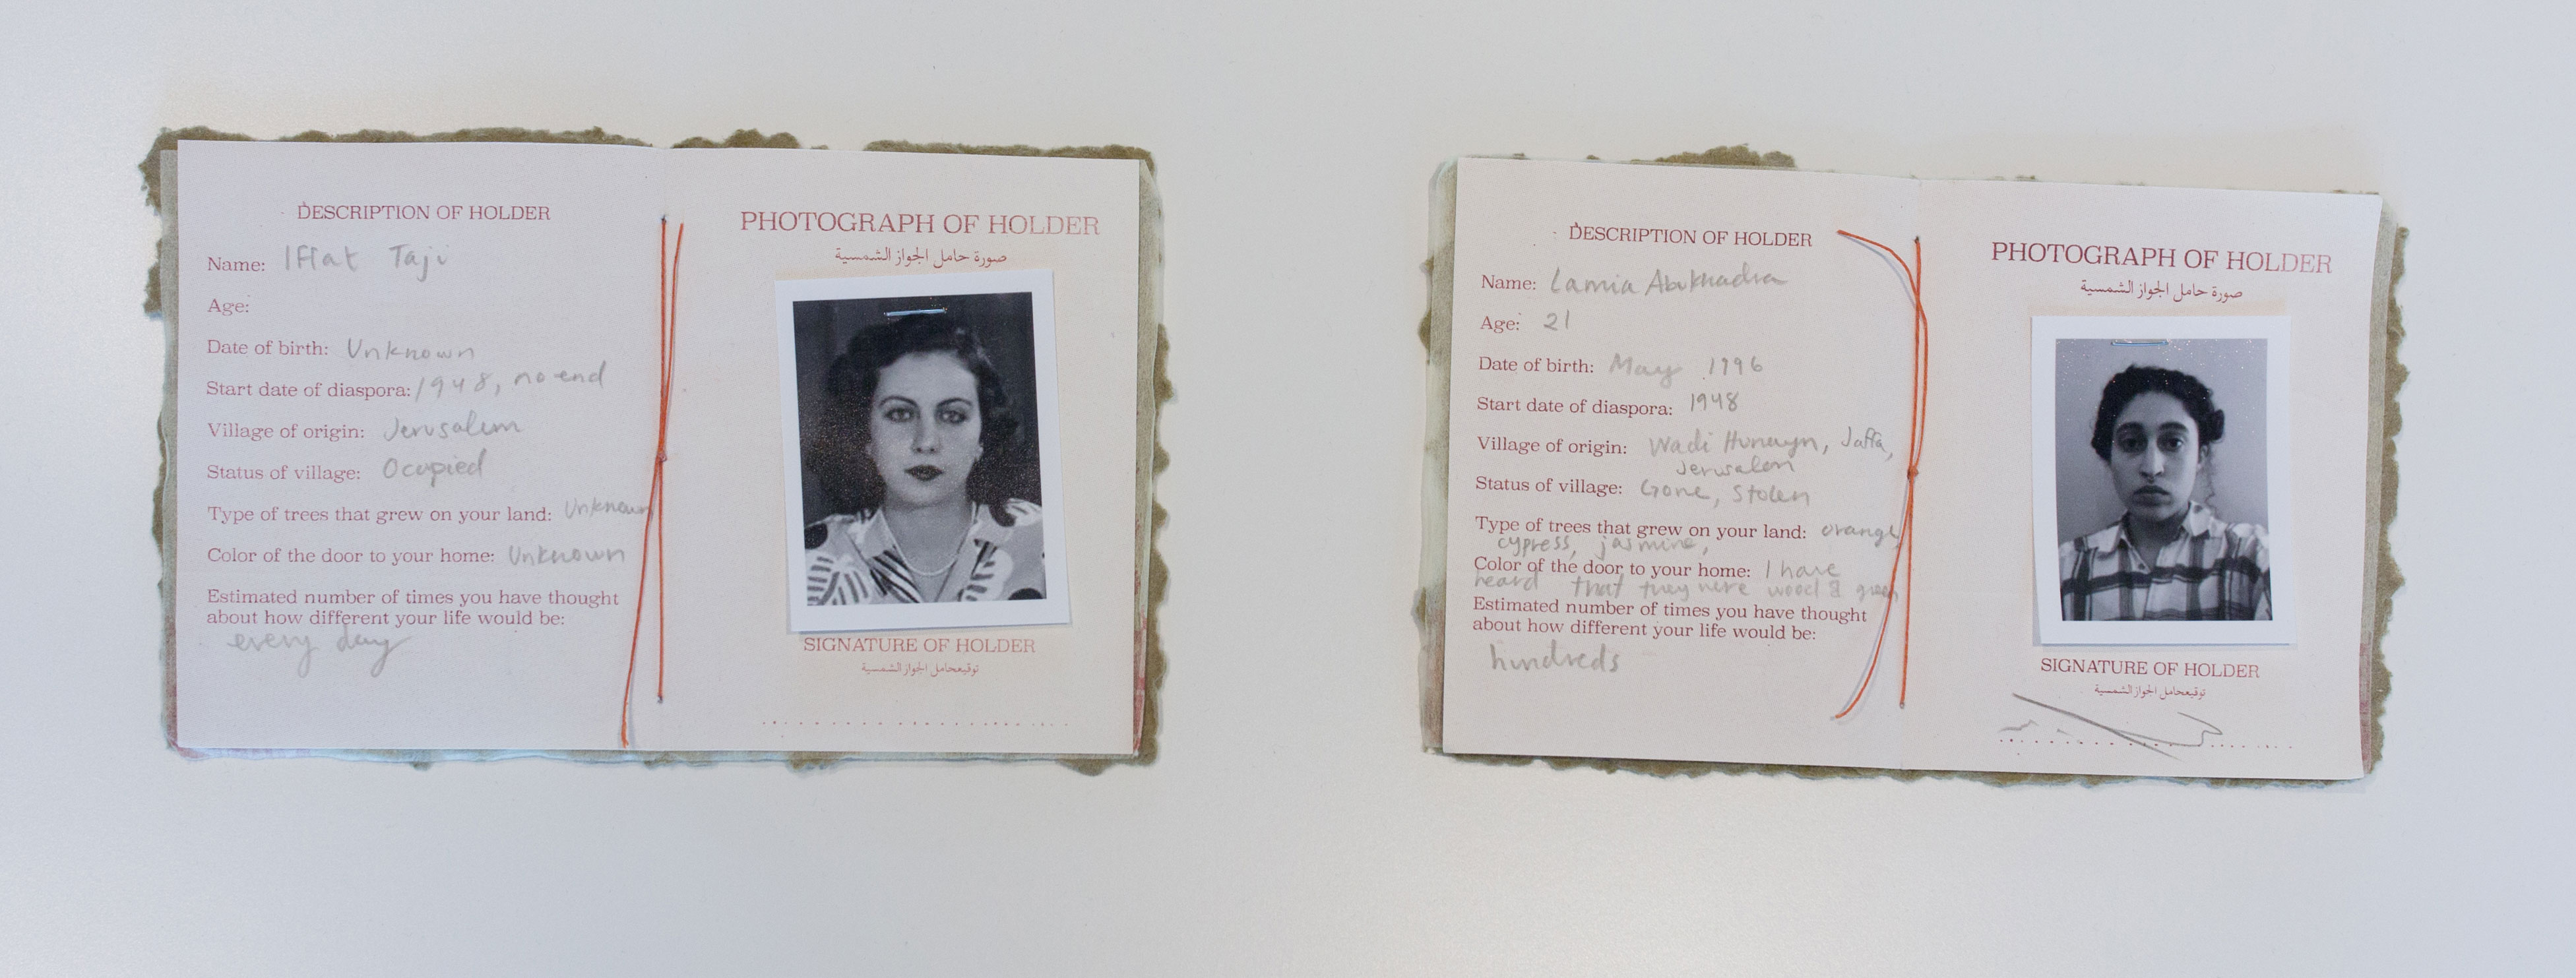 DESCRIPTION OF HOLDER
Name: Iffat Taji
Age:
Date of birth: Unknown
Start date of diaspora: 1948, no end
Village of origin: Jerusalem
Status of village: Ocupied
Type of trees that grew on your land: Unknown
Color of the door to your home: Unknown
Estimated number of times you have thought
about how different your life would be:
every day
PHOTOGRAPH OF HOLDER
صورة حامل الجواز الشمسية
SIGNATURE OF HOLDER
توقيعحامل الجواز الشمسية
DESCRIPTION OF HOLDER
Name: Lamia Abukhadra
Age: 21
Date of birth: May 1996
Start date of diaspora: 1948
Village of origin: Wadi Hunayn, Jaffa,
Jerusalem
Status of village: Gone, Stolen
Type of trees that grew on your land: orange,
cypress, jasmine,
Color of the door to your home: I have
heard that they were wood & green
Estimated number of times you have thought
about how different your life would be:
hundreds
PHOTOGRAPH OF HOLDER
صورة حامل الجواز الشمسية
SIGNATURE OF HOLDER
توقيعحامل الجواز الشمسية